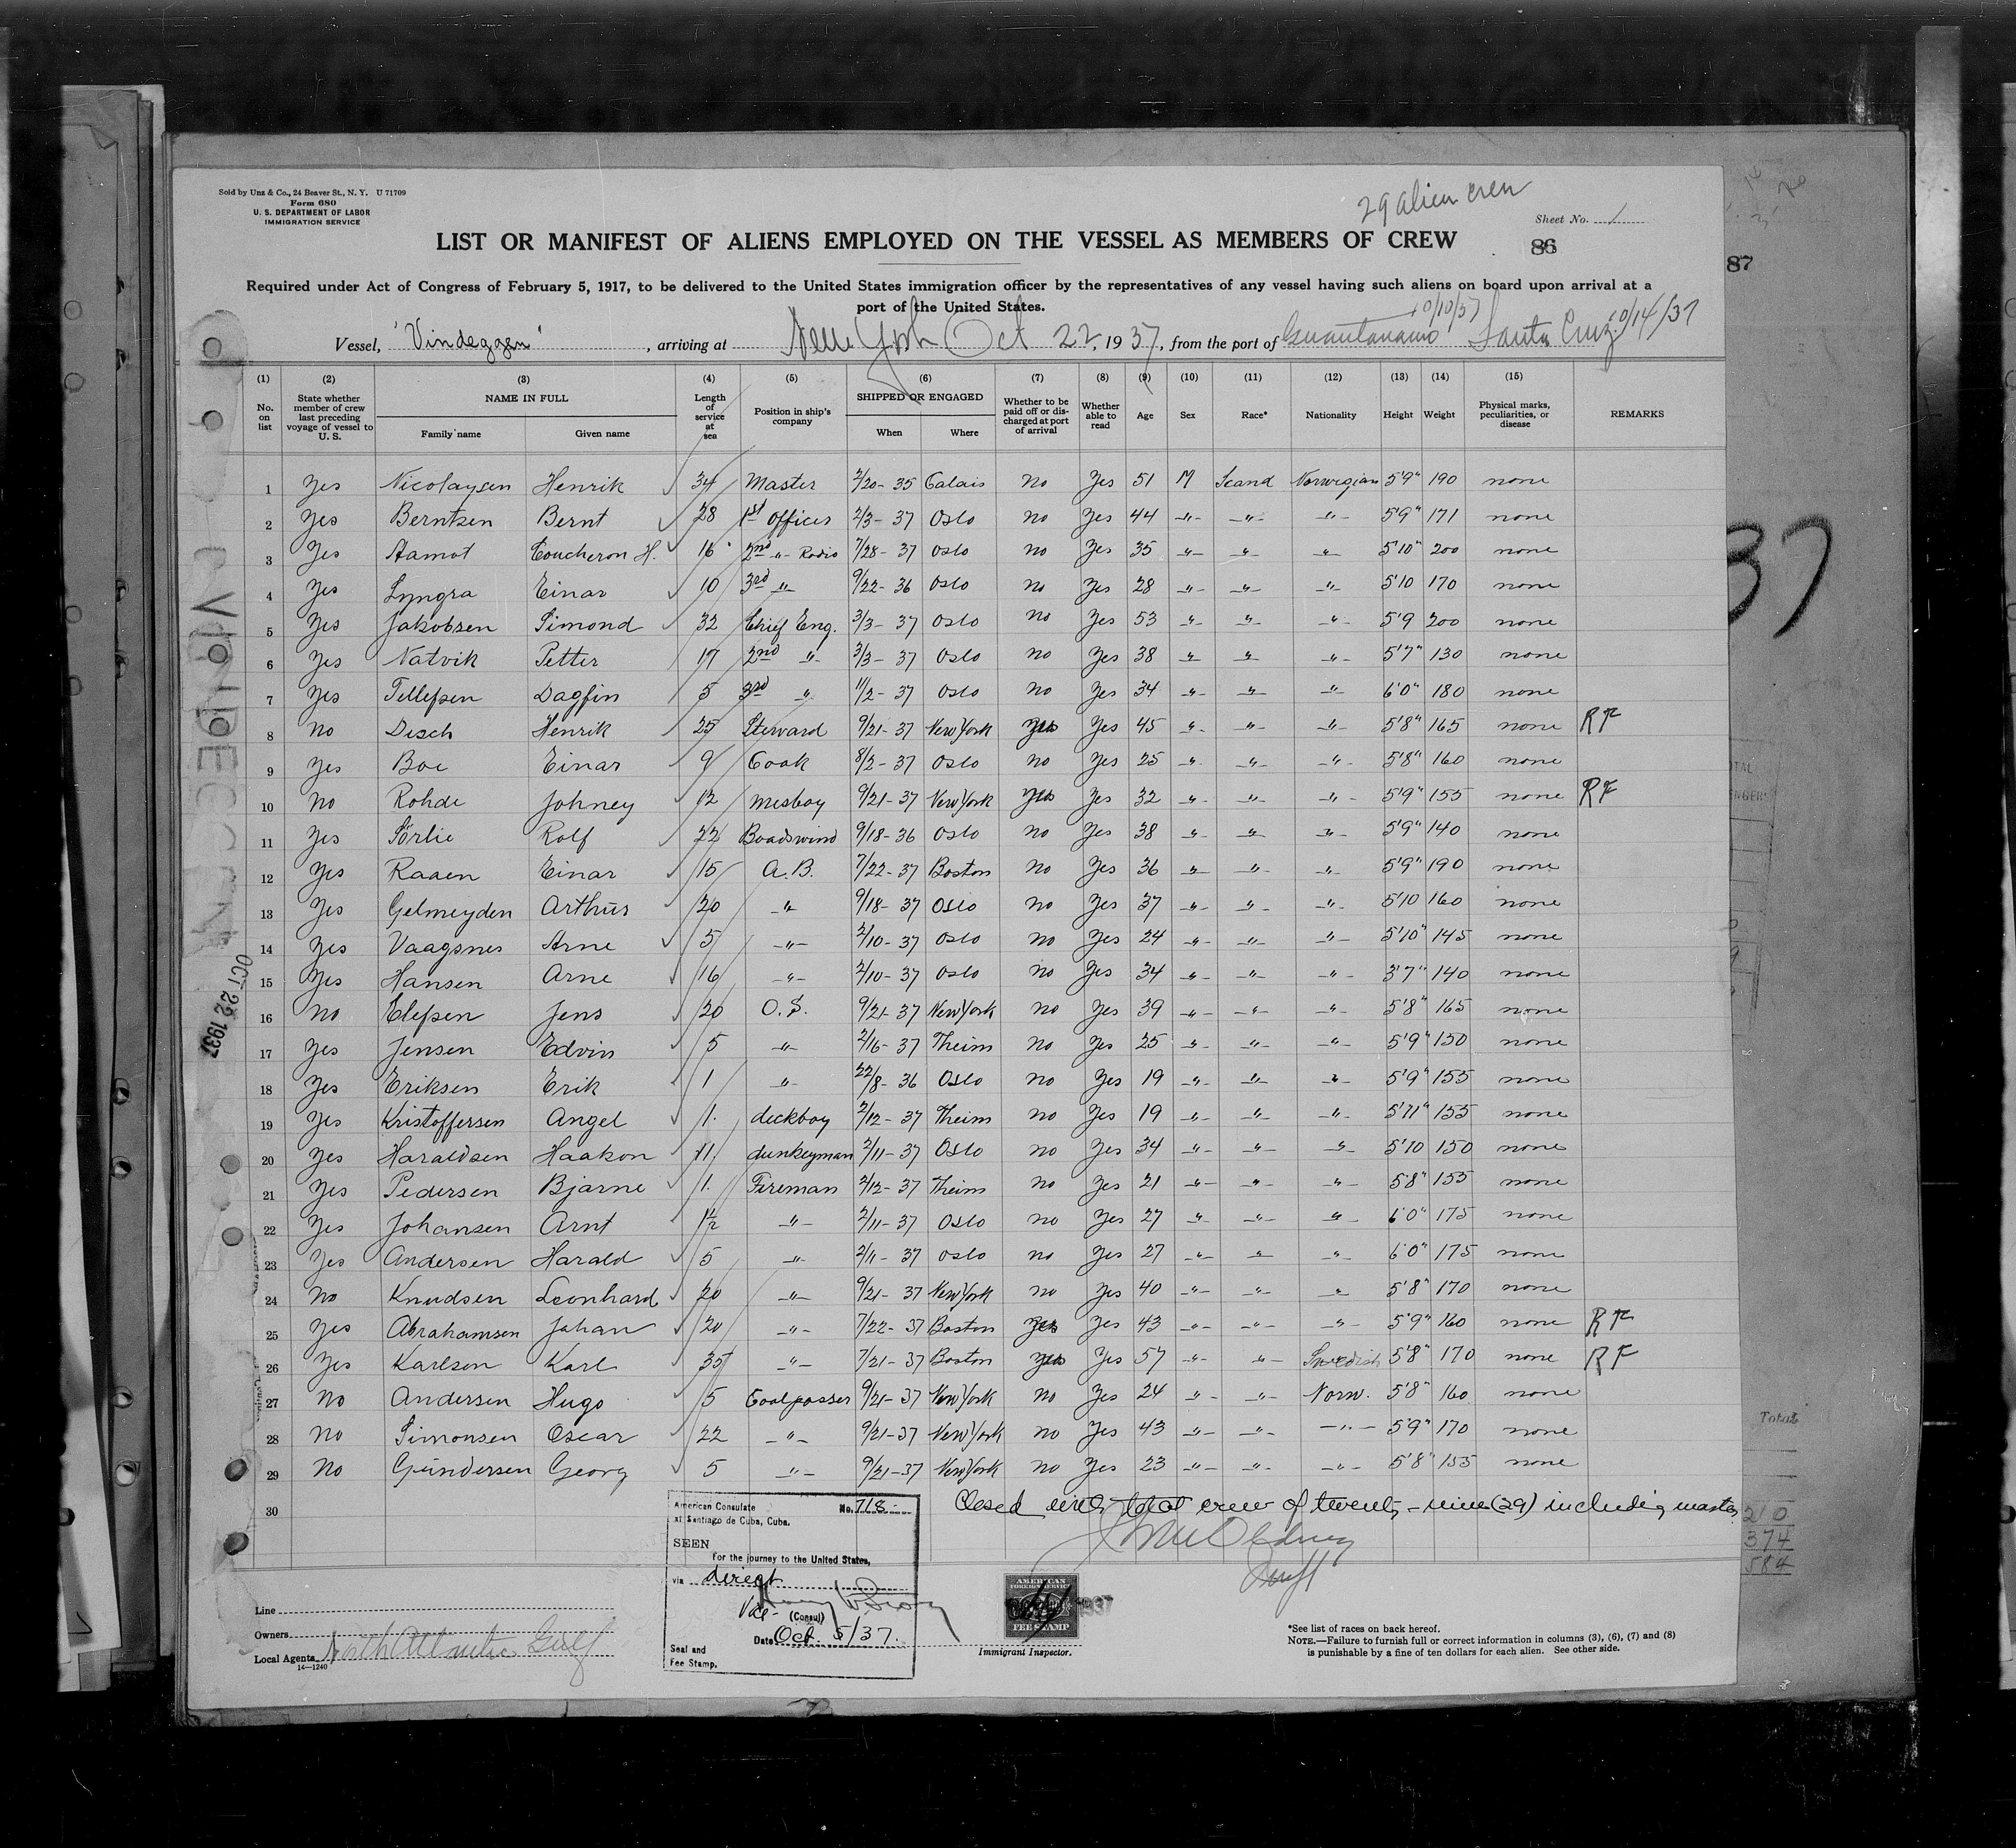 Sold by Unz & Co., 24 Beaver St., N. Y. U 71709
Form 680
U. S. DEPARTMENT OF LABOR
IMMIGRATION SERVICE
29 alien crew
Sheet No. 1
LIST OR MANIFEST OF ALIENS EMPLOYED ON THE VESSEL AS MEMBERS OF CREW
86
87
Required under Act of Congress of February 5, 1917, to be delivered to the United States immigration officer by the representatives of any vessel having such aliens on board upon arrival at a
port of the United States.
Vessel, "Vindeggen", arriving at New York Oct 22, 1937, from the port of Guantanamo 10/10/37 Santa Cruz 10/14/37
(1) (2) (3) (4) (5) (6) (7) (8) (9) (10) (11) (12) (13) (14) (15)
No. on list State whether member of crew last preceding voyage of vessel to U. S. NAME IN FULL Family name Given name Length of service at sea Position in ship's company SHIPPED OR ENGAGED When Where Whether to be paid off or discharged at port of arrival Whether able to read Age Sex Race* Nationality Height Weight Physical marks, peculiarities, or disease REMARKS
1 Yes Nicolaysen Henrik 34 Master 2/20-35 Calais No Yes 51 M Scand Norwegian 5'9" 190 none
2 Yes Berntsen Bernt 28 1st officer 2/3-37 Oslo No Yes 44 -"- -"- -"- 5'9" 171 none
3 Yes Aamot Coucheron H. 16 2nd -"- Radio 7/28-37 Oslo No Yes 35 -"- -"- -"- 5'10" 200 none
4 Yes Lyngra Einar 10 3rd -"- 9/22-36 Oslo No Yes 28 -"- -"- -"- 5'10 170 none
5 Yes Jakobsen Simond 32 Chief Eng. 3/3-37 Oslo No Yes 53 -"- -"- -"- 5'9 200 none
6 Yes Natvik Petter 17 2nd -"- 3/3-37 Oslo No Yes 38 -"- -"- -"- 5'7" 130 none
7 Yes Tellefsen Dagfin 5 3rd -"- 11/2-37 Oslo No Yes 34 -"- -"- -"- 6'0" 180 none
8 No Disch Henrik 25 Steward 9/21-37 New York Yes Yes 45 -"- -"- -"- 5'8" 165 none RF
9 Yes Boe Einar 9 Cook 8/2-37 Oslo No Yes 25 -"- -"- -"- 5'8" 160 none
10 No Rohde Johney 12 mesboy 9/21-37 New York Yes Yes 32 -"- -"- -"- 5'9" 155 none RF
11 Yes Sörlie Rolf 22 Boadswind 9/18-36 Oslo No Yes 38 -"- -"- -"- 5'9" 140 none
12 Yes Raaen Einar 15 A.B. 7/22-37 Boston No Yes 36 -"- -"- -"- 5'9" 190 none
13 Yes Gelmeyden Arthur 20 -"- 9/18-37 Oslo No Yes 37 -"- -"- -"- 5'10 160 none
14 Yes Vaagsnes Arne 5 -"- 2/10-37 Oslo No Yes 24 -"- -"- -"- 5'10" 145 none
15 Yes Hansen Arne 16 -"- 2/10-37 Oslo No Yes 34 -"- -"- -"- 5'7" 140 none
16 No Elefsen Jens 20 O.S. 9/21-37 New York No Yes 39 -"- -"- -"- 5'8" 165 none
17 Yes Jensen Edvin 5 -"- 2/16-37 Theim No Yes 25 -"- -"- -"- 5'9" 150 none
18 Yes Eriksen Erik 1 -"- 22/8-36 Oslo No Yes 19 -"- -"- -"- 5'9" 155 none
19 Yes Kristoffersen Angel 1. deckboy 2/12-37 Theim No Yes 19 -"- -"- -"- 5'11" 155 none
20 Yes Haraldsen Haakon 11 dunkeyman 2/11-37 Oslo No Yes 34 -"- -"- -"- 5'10 150 none
21 Yes Pedersen Bjarne 1. Fireman 2/12-37 Theim No Yes 21 -"- -"- -"- 5'8" 155 none
22 Yes Johansen Arnt 1½ -"- 2/11-37 Oslo No Yes 27 -"- -"- -"- 6'0" 175 none
23 Yes Andersen Harald 5 -"- 2/11-37 Oslo No Yes 27 -"- -"- -"- 6'0" 175 none
24 No Knudsen Leonhard 20 -"- 9/21-37 New York No Yes 40 -"- -"- -"- 5'8" 170 none
25 Yes Abrahamsen Johan 20 -"- 7/22-37 Boston Yes Yes 43 -"- -"- -"- 5'9" 160 none RF
26 Yes Karlsen Karl 35 -"- 7/21-37 Boston Yes Yes 57 -"- -"- Swedish 5'8" 170 none RF
27 No Andersen Hugo 5 Coalpasser 9/21-37 New York No Yes 24 -"- -"- Norw. 5'8" 160 none
28 No Simonsen Oscar 22 -"- 9/21-37 New York No Yes 43 -"- -"- -"- 5'9" 170 none
29 No Gündersen Georg 5 -"- 9/21-37 New York No Yes 23 -"- -"- -"- 5'8" 155 none
30 Closed with total crew of twenty-nine (29) including master
VINDEGGEN
OCT 22 1937
37
Total
210
374
584
American Consulate No. 718
at Santiago de Cuba, Cuba.
SEEN
For the journey to the United States,
via direct
Vice- (Consul)
Date Oct. 5/37.
Seal and
Fee Stamp.
AMERICAN
FOREIGN SERVICE
FEE STAMP
1937
Immigrant Inspector.
Line
Owners
Local Agents North Atlantic Gulf
14—1240
*See list of races on back hereof.
NOTE.—Failure to furnish full or correct information in columns (3), (6), (7) and (8)
is punishable by a fine of ten dollars for each alien. See other side.